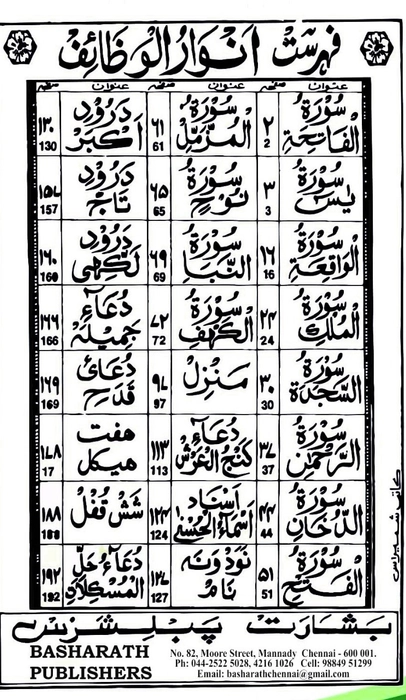 فہرست انوار الوظائف
عنوان صفحہ عنوان صفحہ عنوان صفحہ
سورۃ الفاتحۃ ۲ 2 سورۃ المزمل ۶۱ 61 درود اکبر ۱۳۰ 130
سورۃ یٰسٓ ۳ 3 سورۃ نوح ۶۵ 65 درود تاج ۱۵۷ 157
سورۃ الواقعۃ ۱۶ 16 سورۃ النبا ۶۹ 69 درود لکھی ۱۶۰ 160
سورۃ الملک ۲۴ 24 سورۃ الکھف ۷۲ 72 دعاء جمیلہ ۱۶۶ 166
سورۃ السجدۃ ۳۰ 30 منزل ۹۷ 97 دعائ قدح ۱۶۹ 169
سورۃ الرحمٰن ۳۷ 37 دعاء کنج العرش ۱۱۳ 113 ہفت ہیکل ۱۷۸ 17
سورۃ الدخان ۴۴ 44 اسناد اسماء الحسنیٰ ۱۲۴ 124 شش قفل ۱۸۸ 188
سورۃ الفتح ۵۱ 51 نود و نہ نام ۱۲۷ 127 دعاء حل المشکلات ۱۹۲ 192
بشارت پبلیشرس
BASHARATH PUBLISHERS
No. 82, Moore Street, Mannady Chennai - 600 001.
Ph: 044-2522 5028, 4216 1026 Cell: 98849 51299
Email: basharathchennai@gmail.com